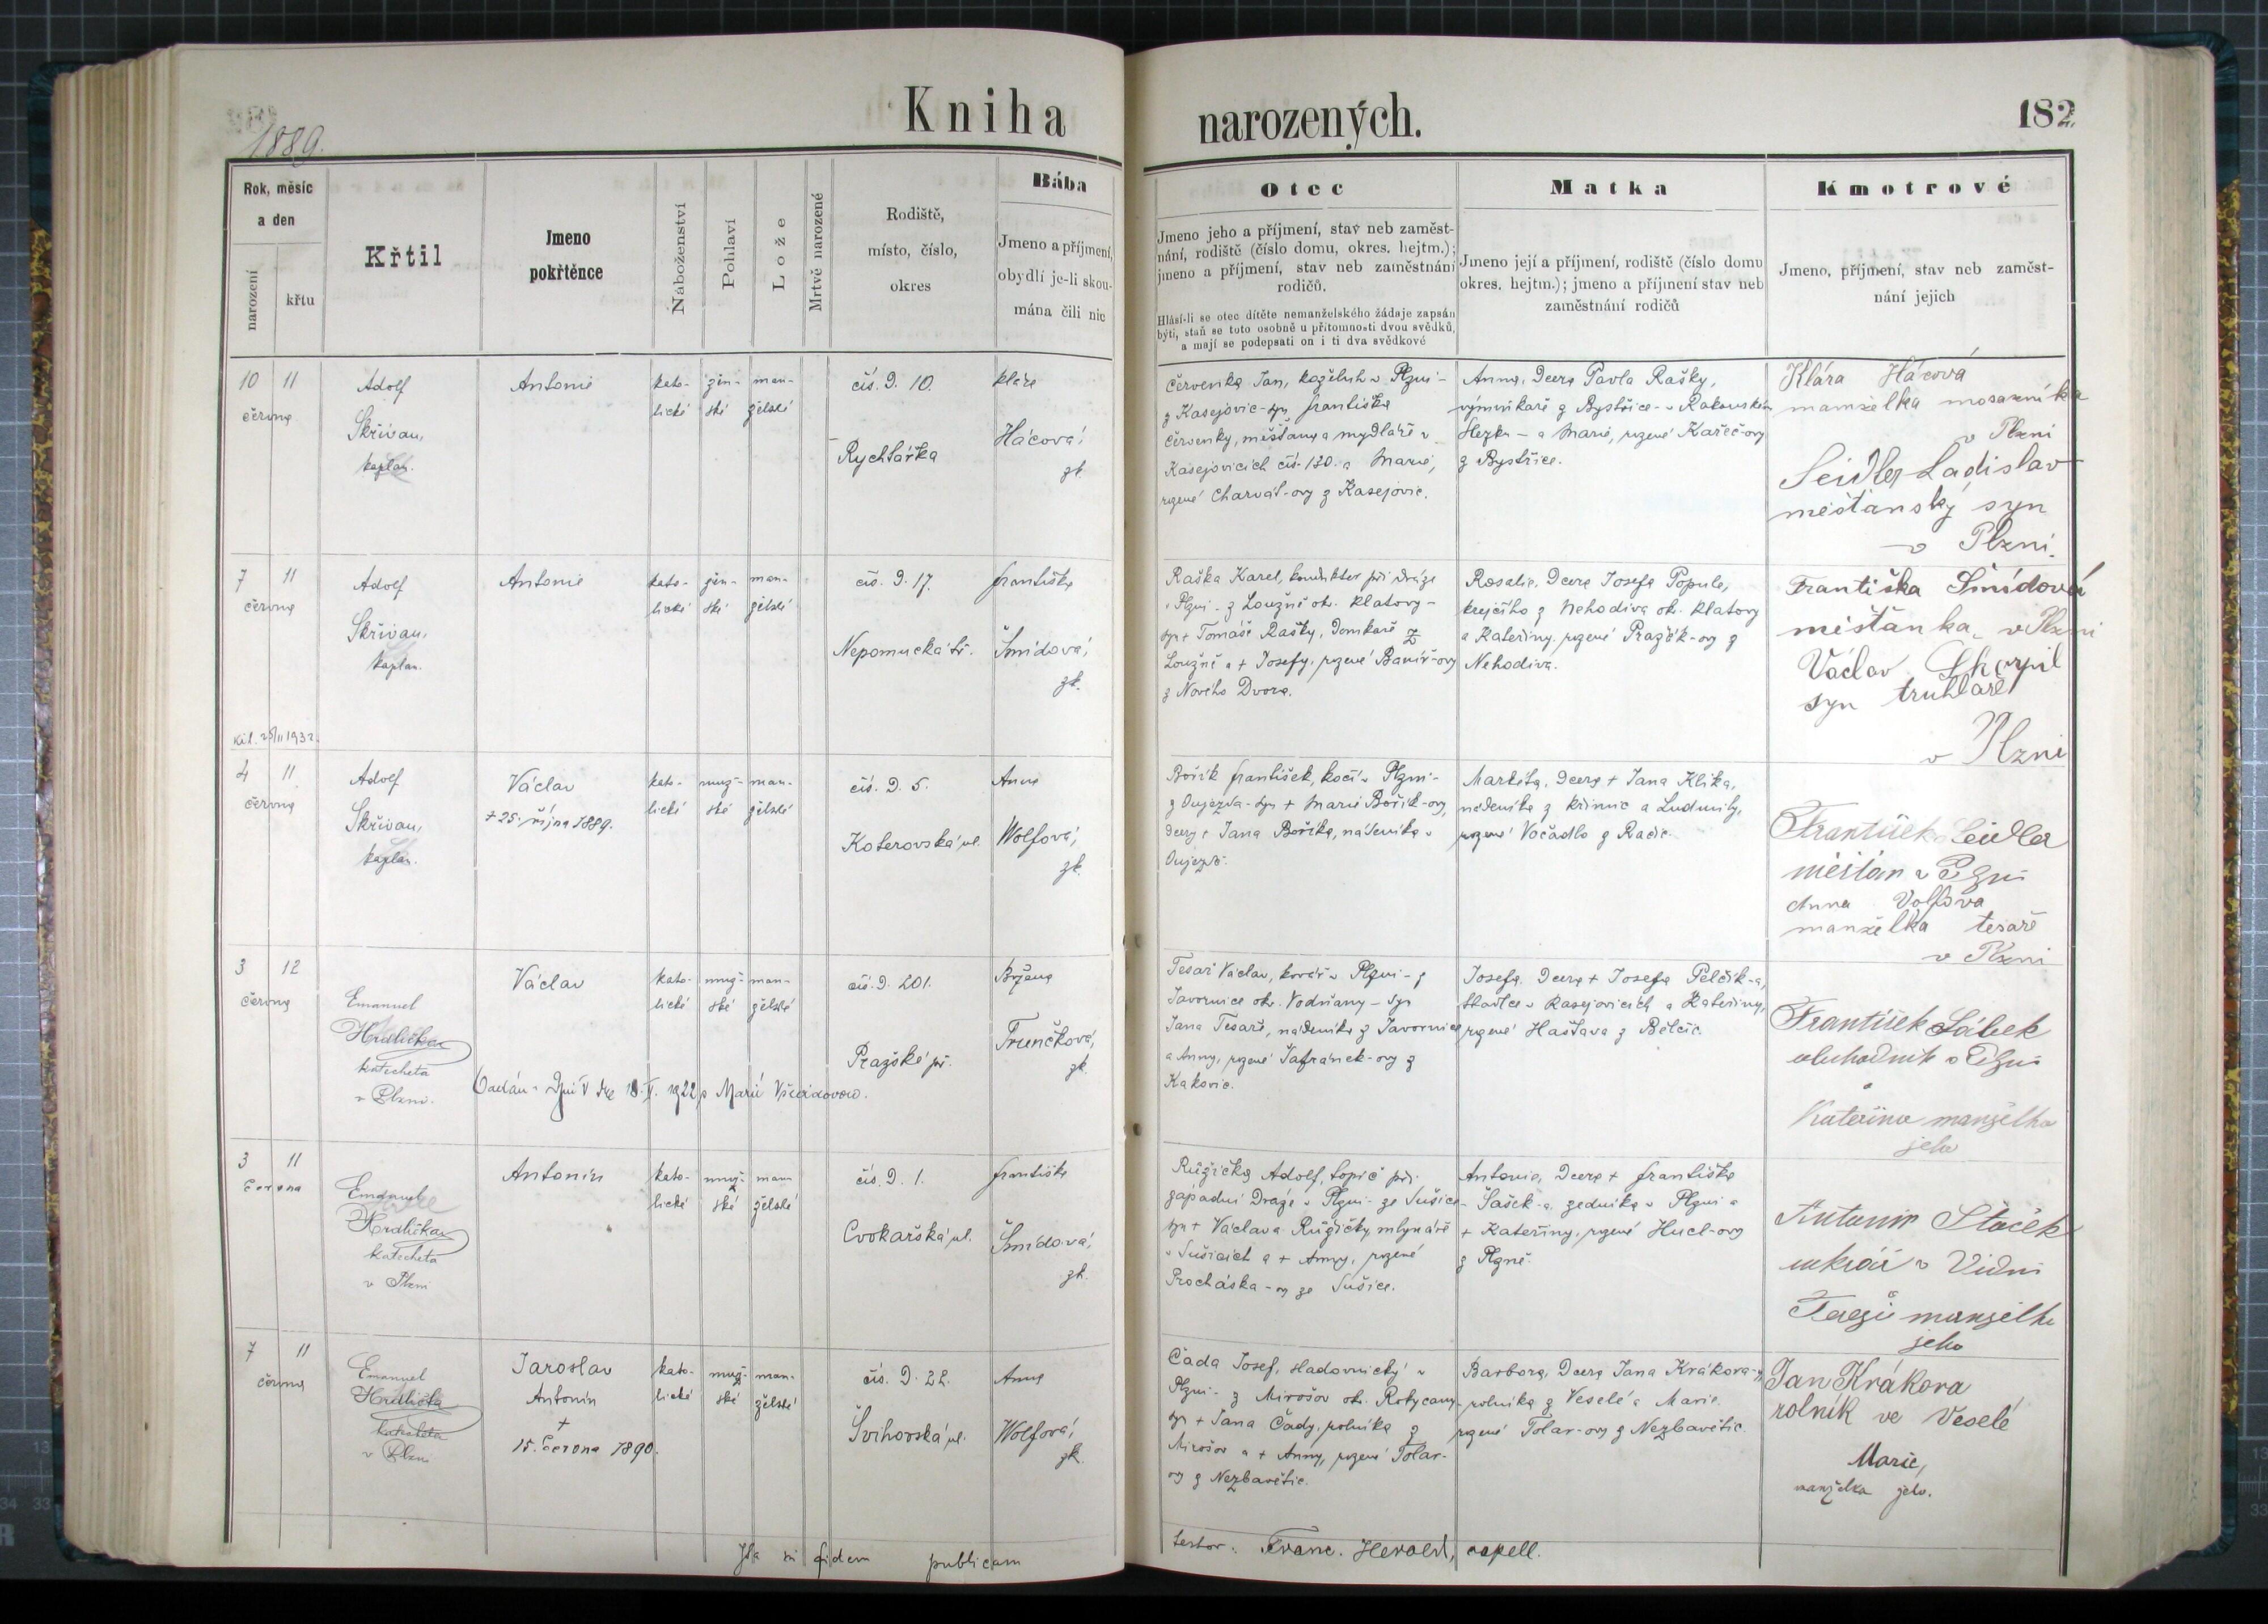 Kniha narozených.
182.
1889.
Rok, měsíc
a den
narození
křtu
Křtil
Jmeno
pokřtěnce
Náboženství
Pohlaví
Lože
Mrtvě narozené
Rodiště,
místo, číslo,
okres
Bába
Jmeno a příjmení,
obydlí je-li skou-
mána čili nic
Otec
Jmeno jeho a příjmení, stav neb zaměst-
nání, rodiště (číslo domu, okres. hejtm.);
jmeno a příjmení, stav neb zaměstnání
rodičů.
Hlásí-li se otec dítěte nemanželského žádaje zapsán
býti, staň se toto osobně u přítomnosti dvou svědků,
a mají se podepsati on i ti dva svědkové
Matka
Jmeno její a příjmení, rodiště (číslo domu
okres. hejtm.); jmeno a příjmení stav neb
zaměstnání rodičů
Kmotrové
Jmeno, příjmení, stav neb zaměst-
nání jejich
10 11
června
Adolf
Skřivan,
kaplan.
Antonie
kato-
lické
žen-
ské
man-
želské
čís. d. 10.
Rychtářka
Klára
Hácová,
zk.
Červenka Jan, koželuh v Plzni -
z Kasejovic - syn Františka
Červenky, měšťana a mydláře v
Kasejovicích čís. 120. a Marie,
rozené Charvát-ovy z Kasejovic.
Anna, dcera Pavla Rašky,
výmínkáře z Bystřice - v Rakouském
Slezku - a Marie, rozené Kařeč-ovy
z Bystřice.
Klára Hácová
manželka mosazníka
v Plzni
Seidler Ladislav
měšťanský syn
v Plzni.
7 11
června
Adolf
Skřivan,
kaplan.
Antonie
kato-
lické
žen-
ské
man-
želské
čís. d. 17.
Nepomucká tř.
Františka
Šmídová,
zk.
Raška Karel, konduktor při dráze
v Plzni - z Loužné okr. Klatovy -
syn + Tomáše Rašky, domkaře z
Loužné a + Josefy, rozené Baníř-ovy
z Nového Dvora.
Rosalie, dcera Josefa Popule,
krejčího z Nehodiva okr. Klatovy
a Kateřiny, rozené Pražák-ovy z
Nehodiva.
Františka Šmídová
měšťanka, v Plzni
Václav
syn truhláře
v Plzni
4 11
června
Adolf
Skřivan,
kaplan.
Václav
+ 25. října 1889.
kato-
lické
muž-
ské
man-
želské
čís. d. 5.
Koterovská ul.
Anna
Wolfová,
zk.
Bořík František, kočí v Plzni -
z Oujezda - syn + Marie Bořík-ovy,
dcery + Jana Boříka, nádeníka v
Oujezdě.
Markéta, dcera + Jana Klika,
nádeníka z Křimic a Ludmily,
rozené Vočadlo z Radčic.
František Seidler
měšťan v Plzni
Anna Volfova
manželka tesaře
v Plzni
3 12
června
Emanuel
Hrdlička
katecheta
v Plzni.
Václav
kato-
lické
muž-
ské
man-
želské
čís. d. 201.
Pražské př.
Božena
Frunčková,
zk.
Tesař Václav, kovář v Plzni - z
Javornice okr. Vodňany - syn
Jana Tesaře, nádeníka z Javornice
a Anny, rozené Šafránek-ovy z
Kakovic.
Josefa, dcera + Josefa Pelčík-a,
tkadlce v Kasejovicích a Kateřiny,
rozené Haštava z Bělčic.
František Sábek
obchodník v Plzni
a
Kateřina manželka
jeho
3 11
června
Emanuel
Hrdlička
katecheta
v Plzni
Antonín
kato-
lické
muž-
ské
man-
želské
čís. d. 1.
Cvokařská ul.
Františka
Šmídová,
zk.
Růžička Adolf, topič při
západní dráze v Plzni - ze Sušice -
syn + Václava Růžičky, mlynáře
v Sušicích a + Anny, rozené
Procháska-ovy ze Sušice.
Antonie, dcera + Františka
Šašek-a, zedníka v Plzni a
+ Kateřiny, rozené Hucl-ovy
z Plzně.
Antonin Stoček
cukrář v Vídni
manželka
jeho
7 11
června
Emanuel
Hrdlička
katecheta
v Plzni
Jaroslav
Antonín
+
15. června 1890.
kato-
lické
muž-
ské
man-
želské
čís. d. 22.
Švihovská ul.
Anna
Wolfová,
zk.
Čada Josef, sladovnický v
Plzni - z Mirošov okr. Rokycany -
syn + Jana Čady, rolníka z
Mirošov a + Anny, rozené Tolar-
ovy z Nezbavětic.
Barbora, dcera Jana Krákora-y,
rolníka z Veselé a Marie
rozené Tolar-ovy z Nezbavětic.
Jan Krákora
rolník ve Veselé
Marie,
manželka jeho.
Ita in fidem publicam
testor: Franc. Herold, capell.